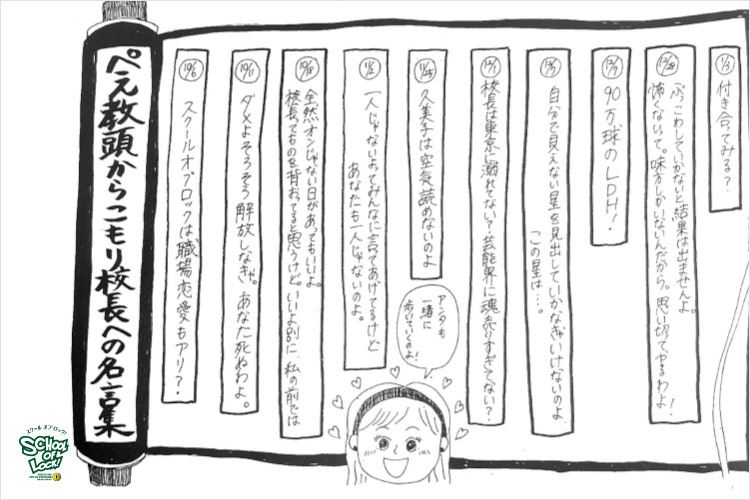 1/3
付き合ってみる？
12/28
「ぶっこわしていかないと結果は出ませんよ。
怖くないって。味方しかいないんだから。思い切ってやるわよ！
12/7
90万球のLDH！
12/5
自分で見えない星を見出していかなきゃいけないのよ
この星は…。
12/1
校長は東京に溺れてない？芸能界に魂売りすぎてない？
11/25
久美子は空気読めないのよ
11/2
一人じゃないよってみんなに言ってあげてるけど
あなたも一人じゃないのよ。
10/18
全然オンじゃない日があってもいいよ。
校長ってものを背おってると思うけど。いいよ別に、私の前では
10/11
ダメよそうそう解放しなきゃ。あなた死ぬわよ。
10/6
スクールオブロックは職場恋愛もアリ？
アンタも
一緒に
歩いていくのよ！
ぺえ教頭からこもり校長への名言集
スクール オブ ロック!
SCHOOL
OF
LOCK!